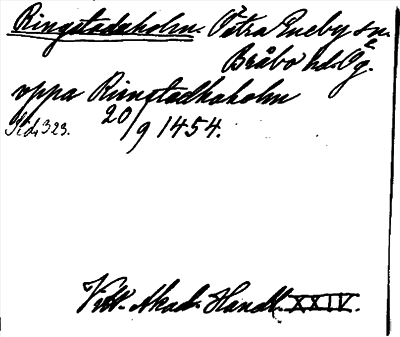 Ringstadaholm. Östra Eneby sn.
Bråbo hd. Ög.
uppa Ringstadhaholm
Sid. 323. 20/9 1454.
Vitt. Akad. Handl. XXIV.